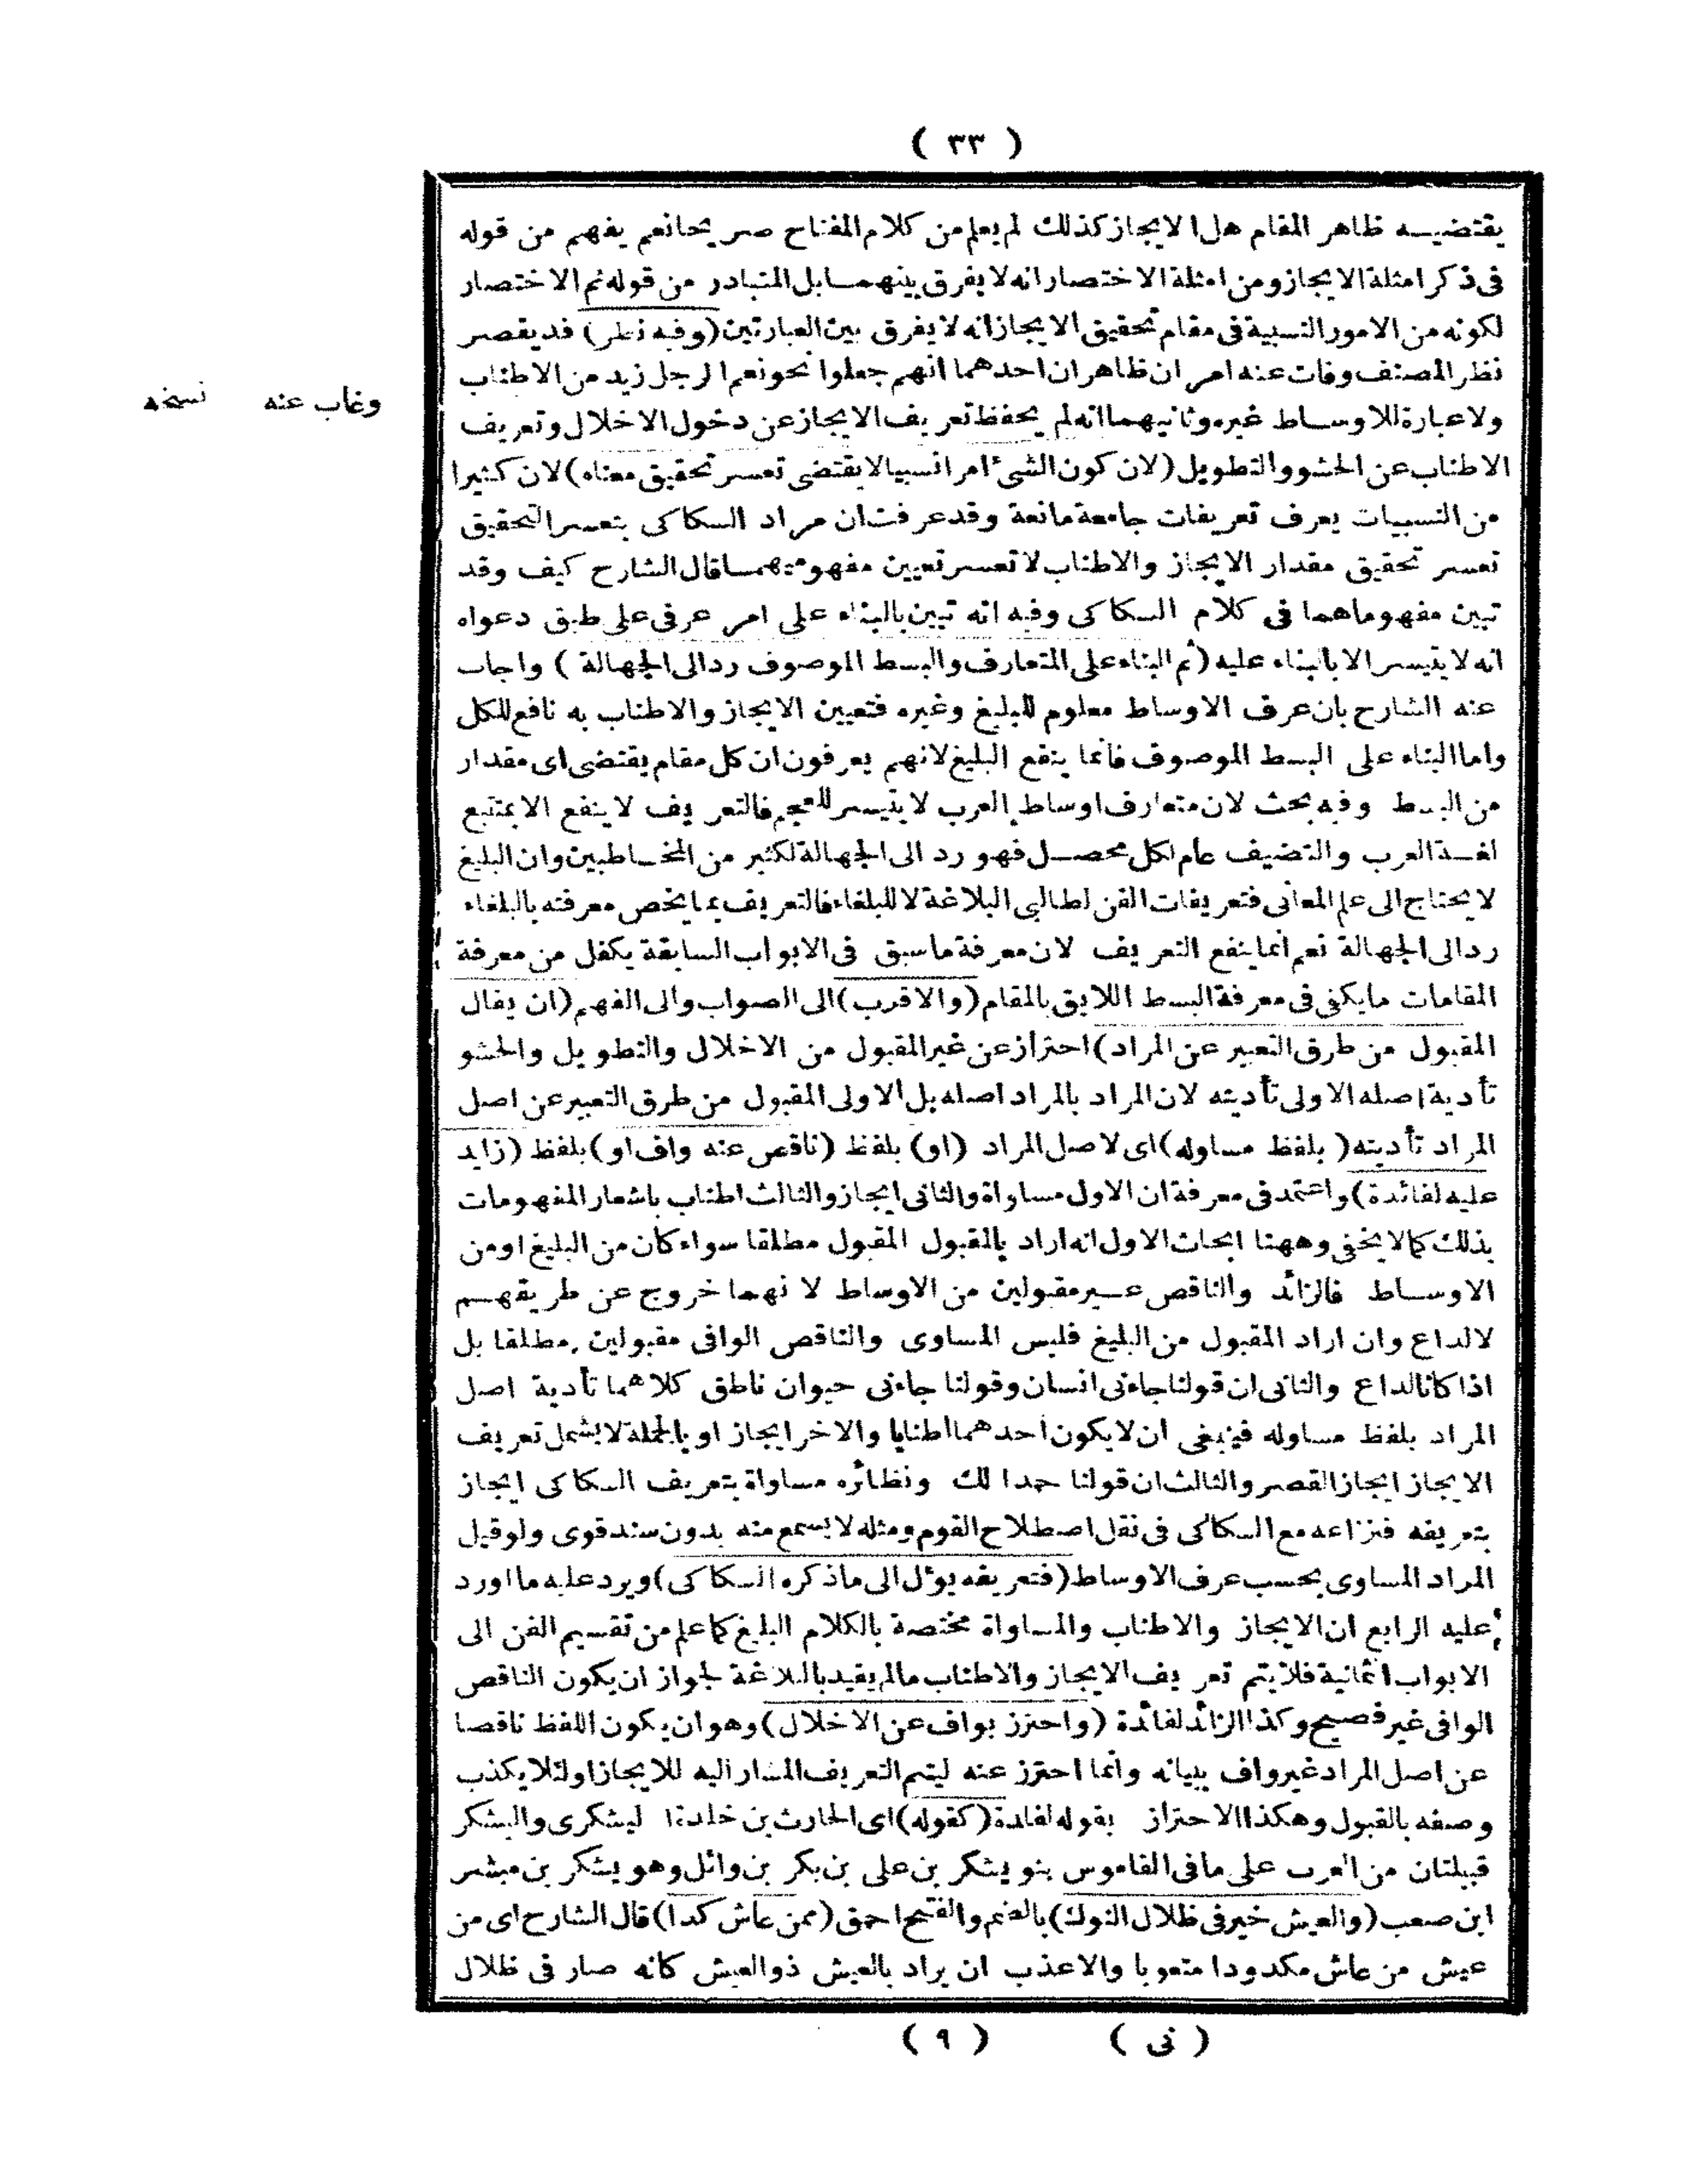 ( ٣٣ )
يقتضيه ظاهر المقام هل الايجاز كذلك لم يعلم من كلام المفتاح صريحا نعم يفهم من قوله
فى ذكر امثلة الايجاز ومن امثلة الاختصار انه لا يفرق بينهما بل المتبادر من قوله ثم الاختصار
لكونه من الامور النسبية فى مقام تحقيق الايجاز انه لا يفرق بين العبارتين (وفيه نظر) قد يقصر
نظر المصنف وفات عنه امر ان ظاهر ان احدهما انهم جعلوا نحو نعم الرجل زيد من الاطناب
وغاب عنه نسخه
ولا عبارة للاوساط غيره وثانيهما انه لم يحفظ تعريف الايجاز عن دخول الاخلال وتعريف
الاطناب عن الحشو والتطويل (لان كون الشئ امرا نسبيا لا يقتضى تعسر تحقيق معناه) لان كثيرا
من النسبيات يعرف تعريفات جامعة مانعة وقد عرفت ان مراد السكاكى بتعسر التحقيق
تعسر تحقيق مقدار الايجاز والاطناب لا تعسر تعيين مفهوميهما قال الشارح كيف وقد
تبين مفهوماهما فى كلام السكاكى وفيه انه تبين بالبناء على امر عرفى على طبق دعواه
انه لا يتيسر الا بالبناء عليه (ثم البناء على المتعارف والبسط الموصوف رد الى الجهالة) واجاب
عنه الشارح بان عرف الاوساط معلوم للبليغ وغيره فتعيين الايجاز والاطناب به نافع للكل
واما البناء على البسط الموصوف فانما ينفع البليغ لانهم يعرفون ان كل مقام يقتضى اى مقدار
من البسط وفيه بحث لان متعارف اوساط العرب لا يتيسر للعجم فالتعريف لا ينفع الا بمتتبع
لغة العرب والتضيف عام لكل محصل فهو رد الى الجهالة لكثير من المخاطبين وان البليغ
لا يحتاج الى علم المعانى فتعريفات الفن لطالبى البلاغة لا للبلغاء فالتعريف بما يخص معرفته بالبلغاء
رد الى الجهالة نعم انما ينفع التعريف لان معرفة ما سبق فى الابواب السابقة يكفل من معرفة
المقامات ما يكفى فى معرفة البسط اللايق بالمقام (والاقرب) الى الصواب والى الفهم (ان يقال
المقبول من طرق التعبير عن المراد) احتراز عن غير المقبول من الاخلال والتطويل والحشو
تأدية اصله الاولى تأديته لان المراد بالمراد اصله بل الاولى المقبول من طرق التعبير عن اصل
المراد تأديته (بلفظ مساوله) اى لاصل المراد (او) بلفظ (ناقص عنه واف او) بلفظ (زايد
عليه لفائدة) واعتمد فى معرفة ان الاول مساواة والثانى ايجاز والثالث اطناب باشعار المفهومات
بذلك كما لا يخفى وههنا ابحاث الاول انه اراد بالمقبول المقبول مطلقا سواء كان من البليغ او من
الاوساط فالزائد والناقص غير مقبولين من الاوساط لانهما خروج عن طريقهم
لا لداع وان اراد المقبول من البليغ فليس المساوى والناقص الوافى مقبولين مطلقا بل
اذا كانا لداع والثانى ان قولنا جاءنى انسان وقولنا جاءنى حيوان ناطق كلاهما تأدية اصل
المراد بلفظ مساوله فينبغى ان لا يكون احدهما اطنابا والاخر ايجاز او بالجملة لا يشمل تعريف
الايجاز ايجاز القصر والثالث ان قولنا حمدا لك ونظائره مساواة بتعريف السكاكى ايجاز
بتعريفه فنزاعه مع السكاكى فى نقل اصطلاح القوم ومثله لا يسمع منه بدون سند قوى ولو قيل
المراد المساوى بحسب عرف الاوساط (فتعريفه يؤل الى ما ذكره السكاكى) ويرد عليه ما اورد
عليه الرابع ان الايجاز والاطناب والمساواة مختصة بالكلام البليغ كما علم من تقسيم الفن الى
الابواب الثمانية فلا يتم تعريف الايجاز والاطناب مالم يقيد بالبلاغة لجواز ان يكون الناقص
الوافى غير فصيح وكذا الزائد لفائدة (واحترز بواف عن الاخلال) وهو ان يكون اللفظ ناقصا
عن اصل المراد غير واف ببيانه وانما احترز عنه ليتم التعريف المشار اليه للايجاز او لئلا يكذب
وصفه بالقبول وهكذا الاحتراز بقوله لفايدة (كقوله) اى الحارث بن خلدة اليشكرى واليشكر
قبيلتان من العرب على ما فى القاموس بنو يشكر بن على بن بكر بن وائل وهو يشكر بن مبشر
ابن صعب (والعيش خير فى ظلال النوك) بالضم والفتح احمق (ممن عاش كدا) قال الشارح اى من
عيش من عاش مكدودا متعوبا والاعذب ان يراد بالعيش ذو العيش كانه صار فى ظلال
( نى ) ( ٩ )